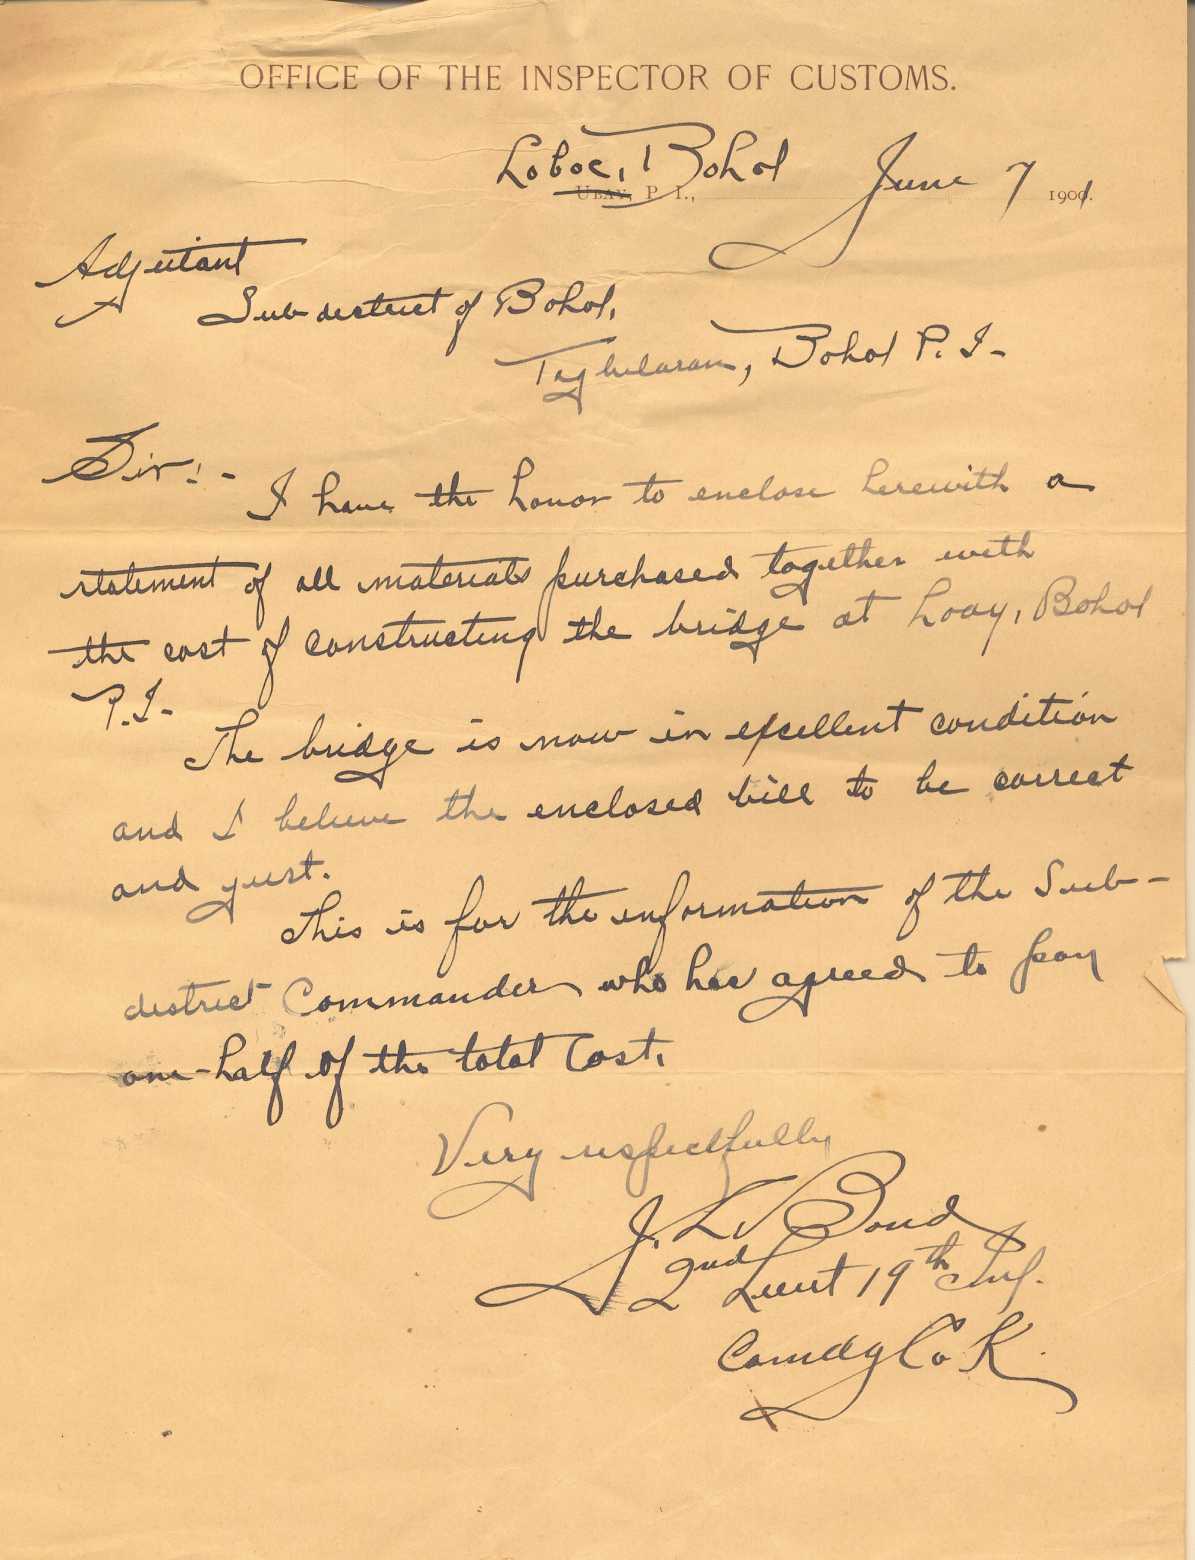 OFFICE OF THE INSPECTOR OF CUSTOMS.
Loboc, Bohol June 7 1901.
UBAY, P. I.,
Adjutant
Sub-district of Bohol,
Tagbilaran, Bohol P. I-
Sir:-
I have the honor to enclose herewith a
statement of all materials purchased together with
the cost of constructing the bridge at Loay, Bohol
P. I-
The bridge is now in excellent condition
and I believe the enclosed bill to be correct
and just.
This is for the information of the Sub-
district Commander who has agreed to pay
one-half of the total cost.
Very respectfully
J. L. Bond
2nd Lieut 19th Inf.
Comdg Co K